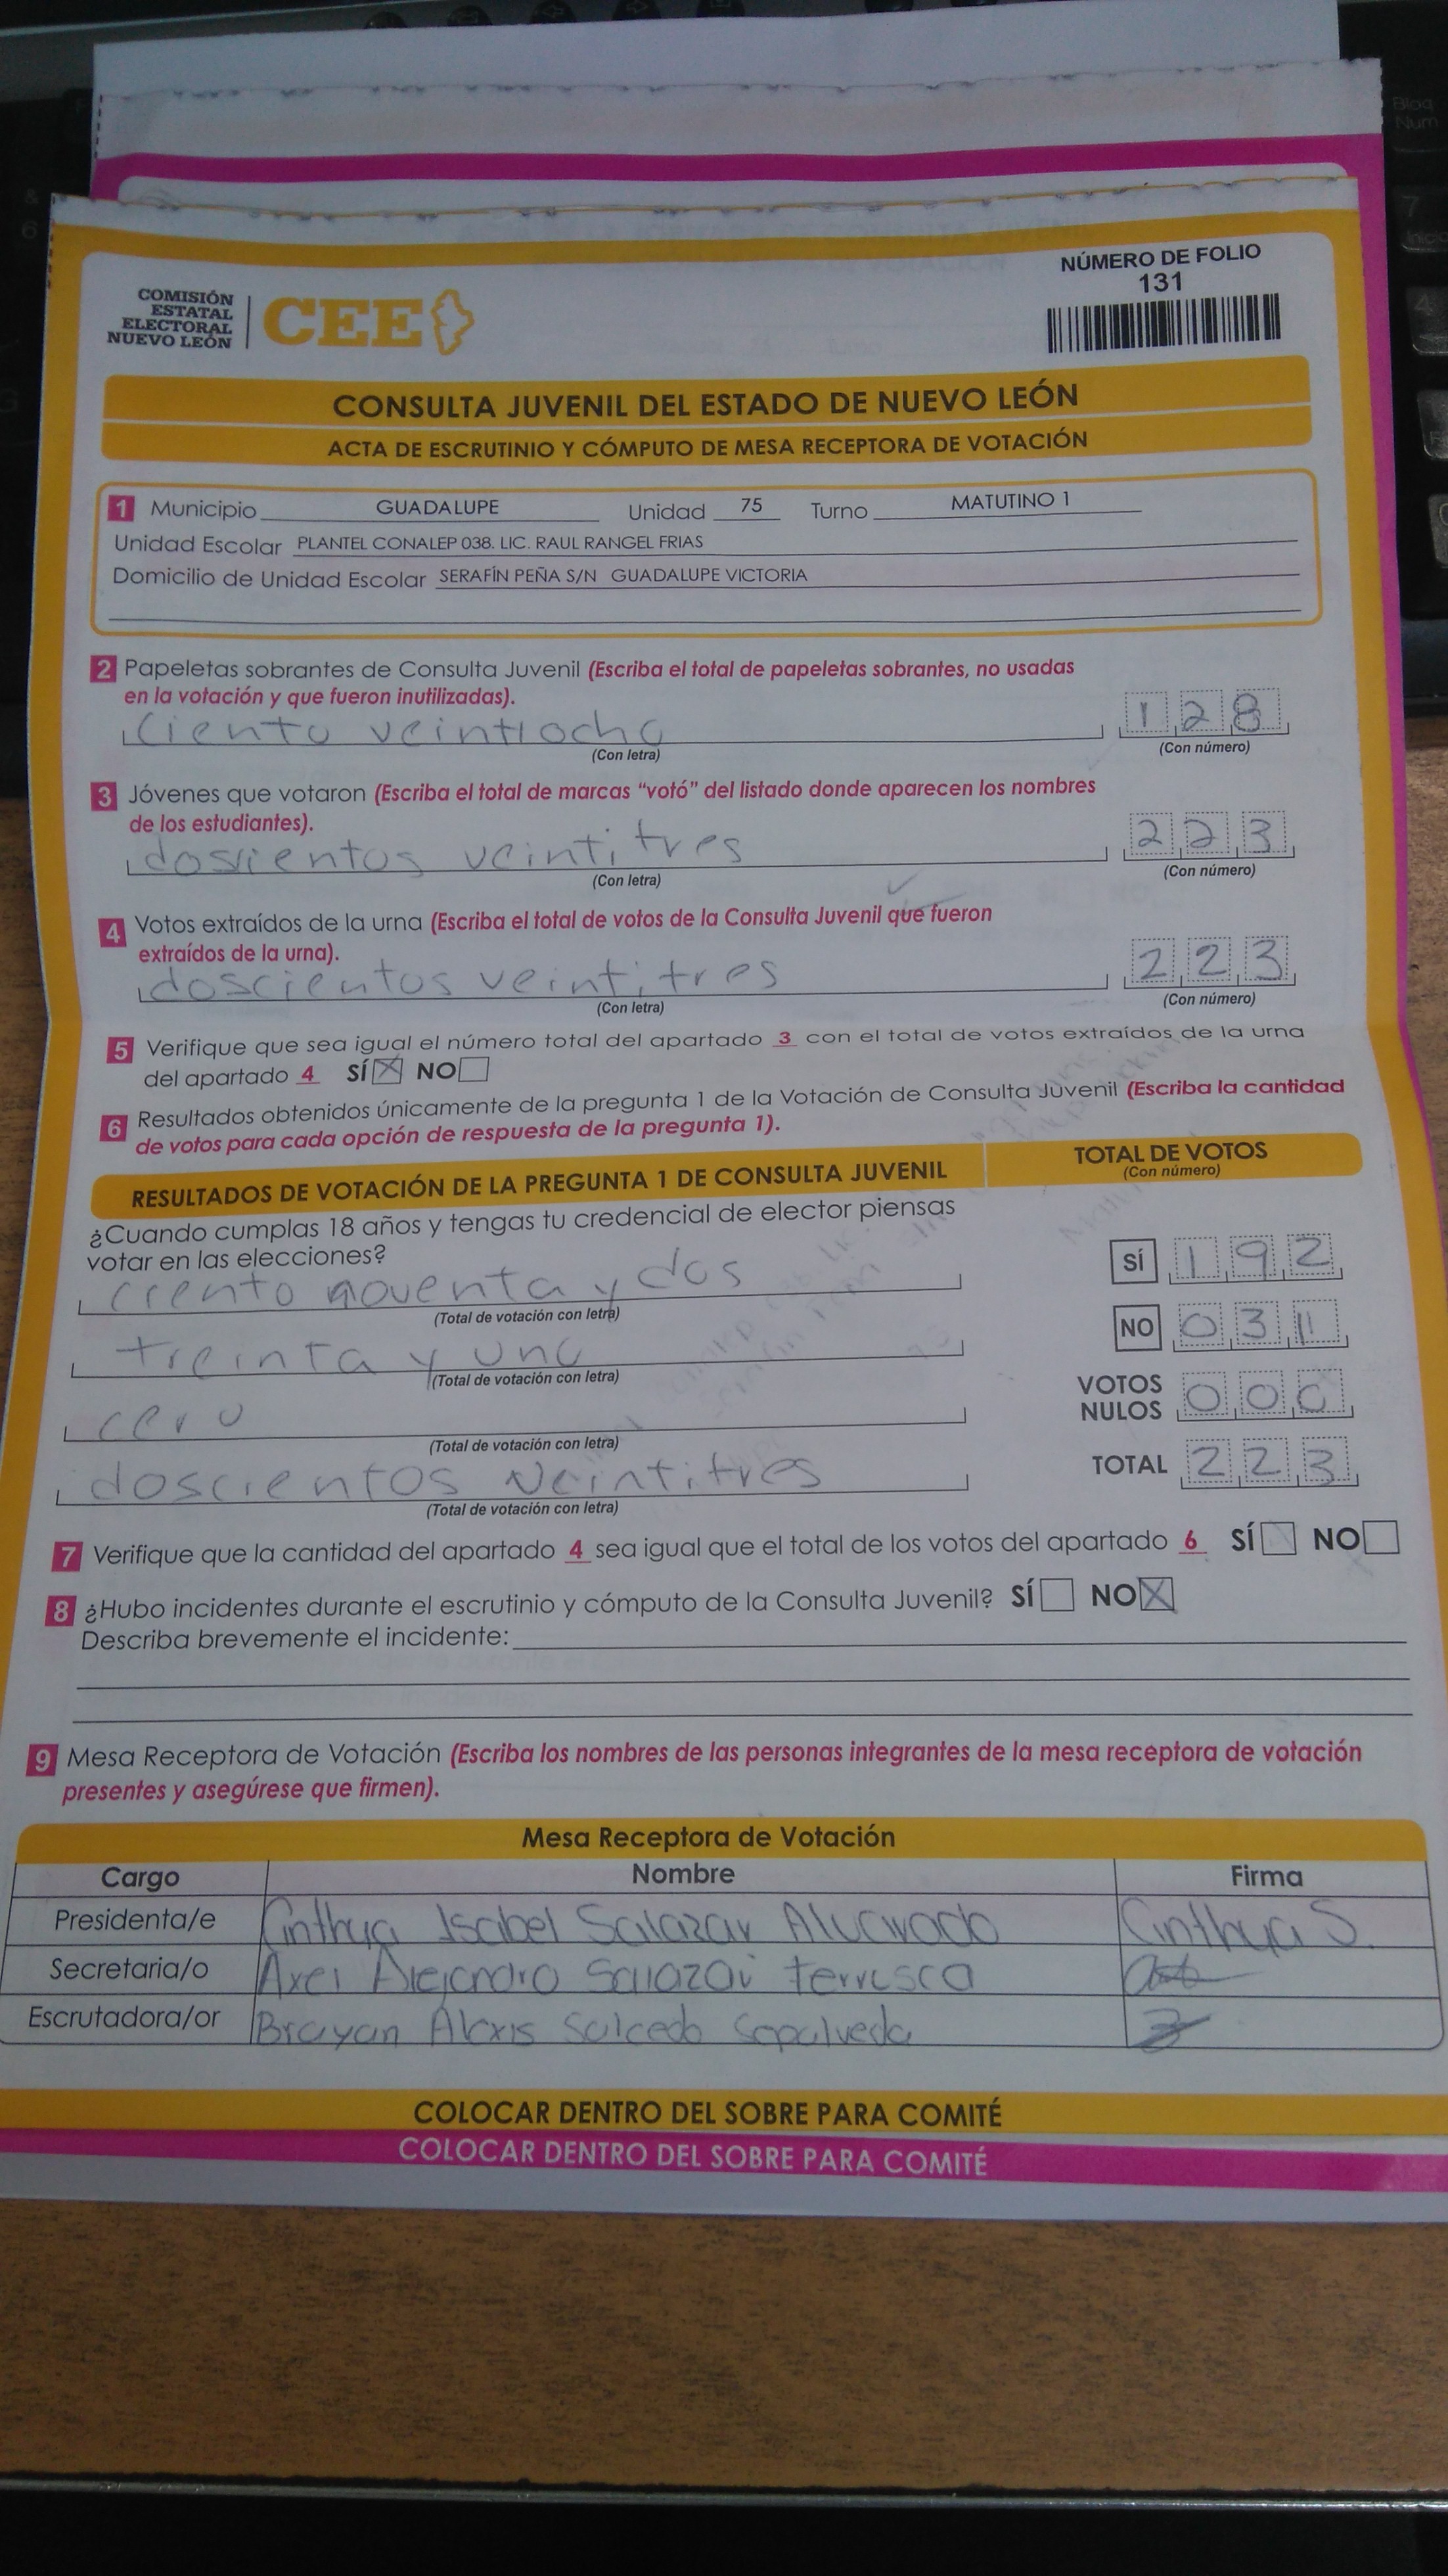 NÚMERO DE FOLIO
131
COMISIÓN
ESTATAL
ELECTORAL
NUEVO LEÓN
CEE
CONSULTA JUVENIL DEL ESTADO DE NUEVO LEÓN
ACTA DE ESCRUTINIO Y CÓMPUTO DE MESA RECEPTORA DE VOTACIÓN
1 Municipio GUADALUPE Unidad 75 Turno MATUTINO 1
Unidad Escolar PLANTEL CONALEP 038. LIC. RAUL RANGEL FRIAS
Domicilio de Unidad Escolar SERAFÍN PEÑA S/N GUADALUPE VICTORIA
2 Papeletas sobrantes de Consulta Juvenil (Escriba el total de papeletas sobrantes, no usadas
en la votación y que fueron inutilizadas).
ciento veintiocho 128
(Con letra) (Con número)
3 Jóvenes que votaron (Escriba el total de marcas “votó” del listado donde aparecen los nombres
de los estudiantes).
dosientos veintitres 223
(Con letra) (Con número)
4 Votos extraídos de la urna (Escriba el total de votos de la Consulta Juvenil que fueron
extraídos de la urna).
doscientos veintitres 223
(Con letra) (Con número)
5 Verifique que sea igual el número total del apartado 3 con el total de votos extraídos de la urna
del apartado 4 SÍ X NO
6 Resultados obtenidos únicamente de la pregunta 1 de la Votación de Consulta Juvenil (Escriba la cantidad
de votos para cada opción de respuesta de la pregunta 1).
RESULTADOS DE VOTACIÓN DE LA PREGUNTA 1 DE CONSULTA JUVENIL
TOTAL DE VOTOS
(Con número)
¿Cuando cumplas 18 años y tengas tu credencial de elector piensas
votar en las elecciones?
ciento noventa y dos SÍ 192
(Total de votación con letra)
treinta y uno NO 031
(Total de votación con letra)
cero VOTOS NULOS 000
(Total de votación con letra)
doscientos veintitres TOTAL 223
(Total de votación con letra)
7 Verifique que la cantidad del apartado 4 sea igual que el total de los votos del apartado 6 SÍ NO
8 ¿Hubo incidentes durante el escrutinio y cómputo de la Consulta Juvenil? SÍ NO X
Describa brevemente el incidente:
9 Mesa Receptora de Votación (Escriba los nombres de las personas integrantes de la mesa receptora de votación
presentes y asegúrese que firmen).
Mesa Receptora de Votación
Cargo Nombre Firma
Presidenta/e Cinthya Isabel Salazar Alvarado Cinthya S.
Secretaria/o Axel Alejandro Salazar
Escrutadora/or Brayan Alexis Salcedo Sepulveda
COLOCAR DENTRO DEL SOBRE PARA COMITÉ
COLOCAR DENTRO DEL SOBRE PARA COMITÉ